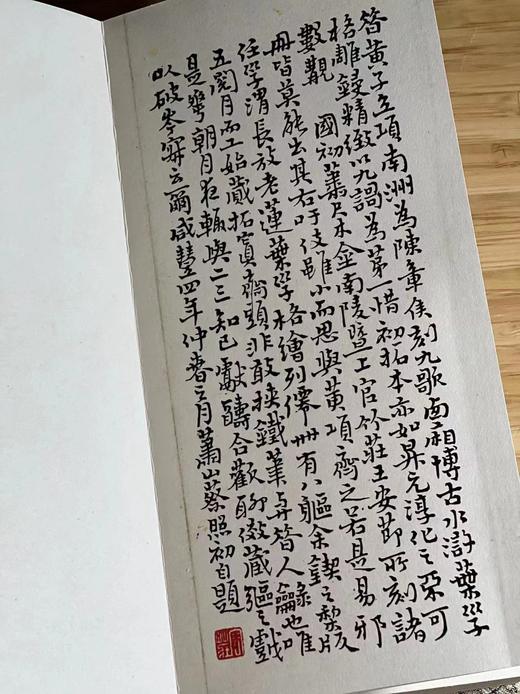 昔黃子立項南洲為陳章侯刻九歌西廂博古水滸葉子
格雕鋟精緻以九謌為第一惜初拓本亦如昇元淳化之不可
數觀 國初蕭尺木金南陵暨工官竹莊王安節所刻諸
冊皆莫能出其右吁伎雖小而思與黃項齊之若是易邪
任渭長放老蓮葉子格繪列僊卌有八軀余鍥之棃版
五閱月而工始蕆拓寘齋頭非敢挾鐵筆與昔人龢也唯
是華朝月夜輒與二三知己獻醻合歡聊傚藏彄之戲
以破岑云爾咸豐四年仲春之月蕭山蔡照初自題